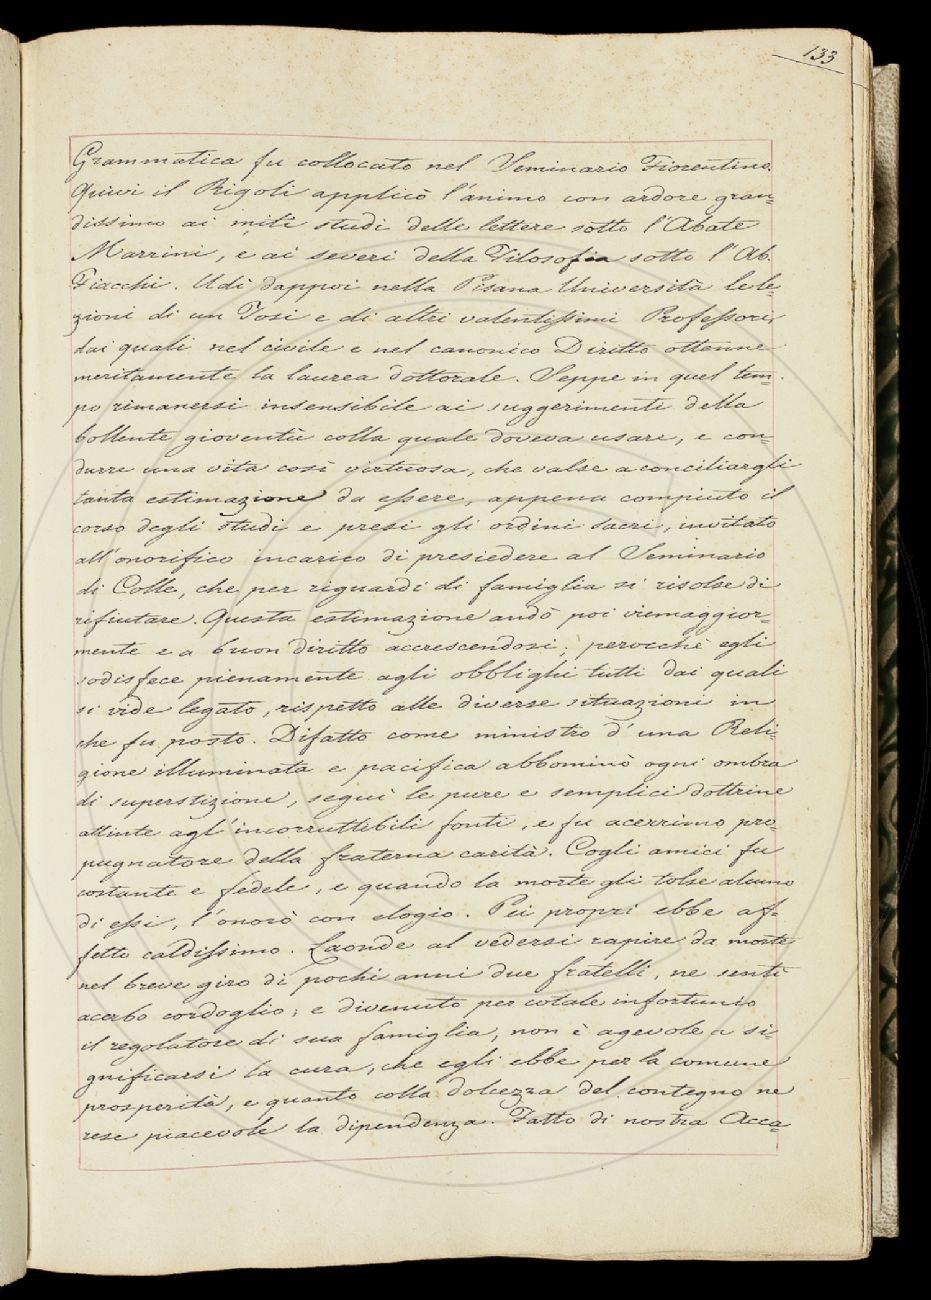 133
Grammatica fu collocato nel Seminario Fiorentino.
Quivi il Rigoli applicò l'animo con ardore gran=
dissimo ai miti studi delle lettere sotto l'Abate
Marrini, e ai severi della Filosofia sotto l'Ab.
Fiacchi. Udì dappoi nella Pisana Università le le=
zioni di un Tosi e di altri valentissimi Professori,
dai quali nel civile e nel canonico Diritto ottenne
meritamente la laurea dottorale. Seppe in quel tem=
po rimanersi insensibile ai suggerimenti della
bollente gioventù colla quale doveva usare, e con=
durre una vita così virtuosa, che valse a conciliargli
tanta estimazione da essere, appena compiuto il
corso degli studi e presi gli ordini sacri, invitato
all'onorifico incarico di presiedere al Seminario
di Colle, che per riguardi di famiglia si risolse di
rifiutare. Questa estimazione andò poi viemaggior=
mente e a buon diritto accrescendosi; perocchè egli
sodisfece pienamente agli obblighi tutti dai quali
si vide legato, rispetto alle diverse situazioni in
che fu posto. Difatto come ministro d'una Reli=
gione illuminata e pacifica abbominò ogni ombra
di superstizione, seguì le pure e semplici dottrine
attinte agl'incorruttibili fonti, e fu acerrimo pro=
pugnatore della fraterna carità. Cogli amici fu
costante e fedele, e quando la morte gli tolse alcuno
di essi, l'onorò con elogio. Pei propri ebbe af=
fetto caldissimo. Laonde al vedersi rapire da morte
nel breve giro di pochi anni due fratelli, ne sentì
acerbo cordoglio; e divenuto per cotale infortunio
il regolatore di sua famiglia, non è agevole a si=
gnificarsi la cura, che egli ebbe per la comune
prosperità, e quanto colla dolcezza del contegno ne
rese piacevole la dipendenza. Fatto di nostra Acca=